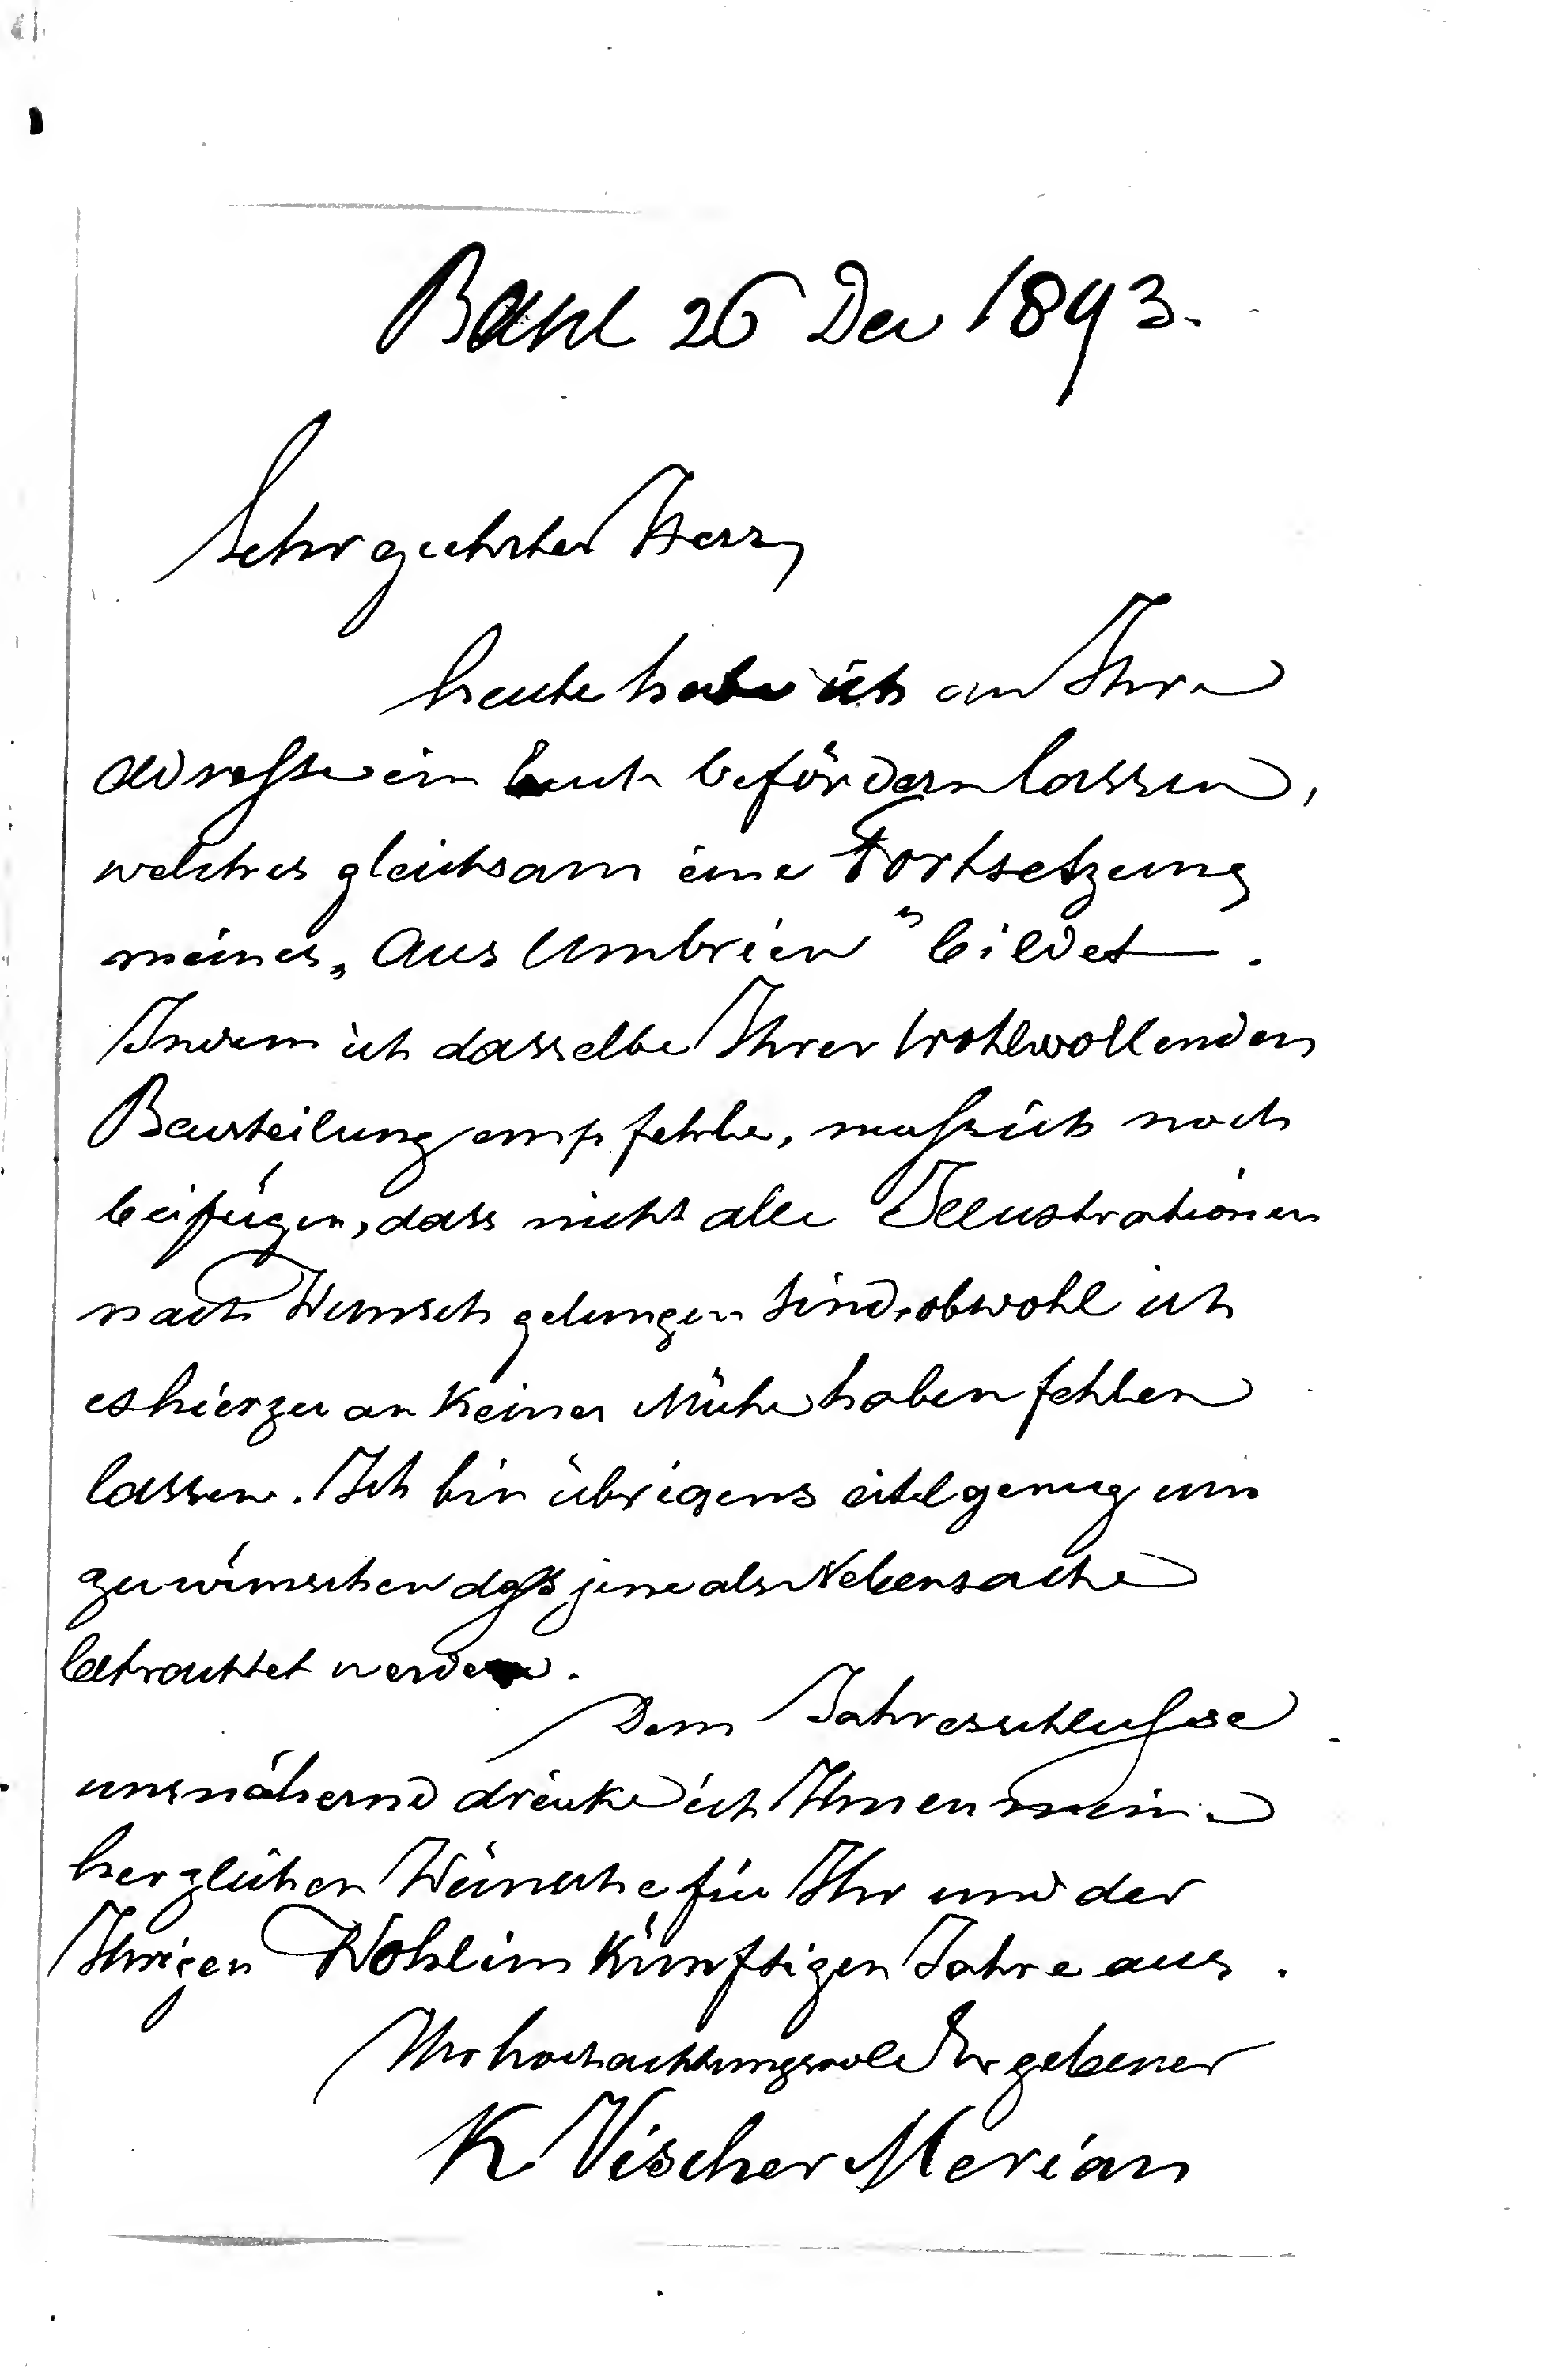 Basel 26 Dec 1893.
Sehr geehrter Herr,
heute habe ich an Ihre
adresse ein buch befördern lassen,
welches gleichsam eine Fortsetzung
meines „Aus Umbrien" bildet.
Indem ich dasselbe Ihrer wohlwollenden
Beurteilung empfehle, muss ich noch
beifügen, dass nicht alle Illustrationen
nach Wunsch gelungen sind, obwohl ich
es hierzu an keiner Mühe haben fehlen
lassen. Ich bin übrigens eitel genug um
zu wünschen dass jene als Nebensache
betrachtet werden.
Dem Jahresschlusse
uns nähernd drücke ich Ihnen meine
herzlichen Wünsche für Ihr und der
Ihrigen Wohl im künftigen Jahre aus.
Ihr hochachtungsvoll Ergebener
K Vischer Merian